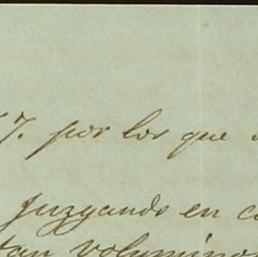 7. por los que
Juzgando en
tan volumino